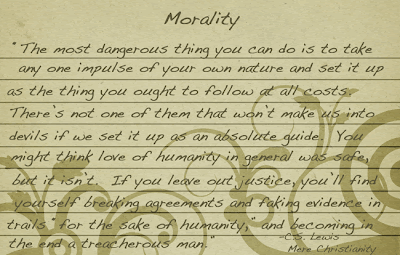 Morality
"The most dangerous thing you can do is to take
any one impulse of your own nature and set it up
as the thing you ought to follow at all costs.
There's not one of them that won't make us into
devils if we set it up as an absolute guide. You
might think love of humanity in general was safe,
but it isn't. If you leave out justice, you'll find
yourself breaking agreements and faking evidence in
trails "for the sake of humanity," and becoming in
the end a treacherous man."
-C.S. Lewis
Mere Christianity